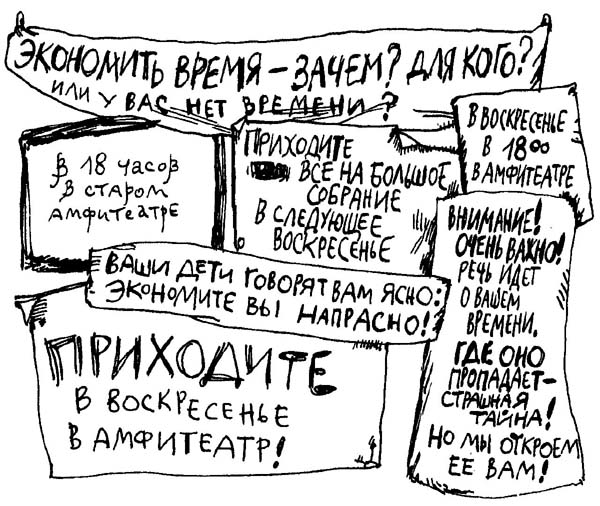 ЭКОНОМИТЬ ВРЕМЯ – ЗАЧЕМ? ДЛЯ КОГО?
ИЛИ У ВАС НЕТ ВРЕМЕНИ?
В 18 часов
в старом
амфитеатре
ПРИХОДИТЕ
ВСЕ НА БОЛЬШОЕ
СОБРАНИЕ
В СЛЕДУЮЩЕЕ
ВОСКРЕСЕНЬЕ
В ВОСКРЕСЕНЬЕ
В 18 00
В АМФИТЕАТРЕ
ВАШИ ДЕТИ ГОВОРЯТ ВАМ ЯСНО:
ЭКОНОМИТЕ ВЫ НАПРАСНО!
ВНИМАНИЕ!
ОЧЕНЬ ВАЖНО!
РЕЧЬ ИДЕТ
О ВАШЕМ
ВРЕМЕНИ.
ГДЕ ОНО
ПРОПАДАЕТ–
СТРАШНАЯ
ТАЙНА!
НО МЫ ОТКРОЕМ
ЕЕ ВАМ!
ПРИХОДИТЕ
В ВОСКРЕСЕНЬЕ
В АМФИТЕАТР!